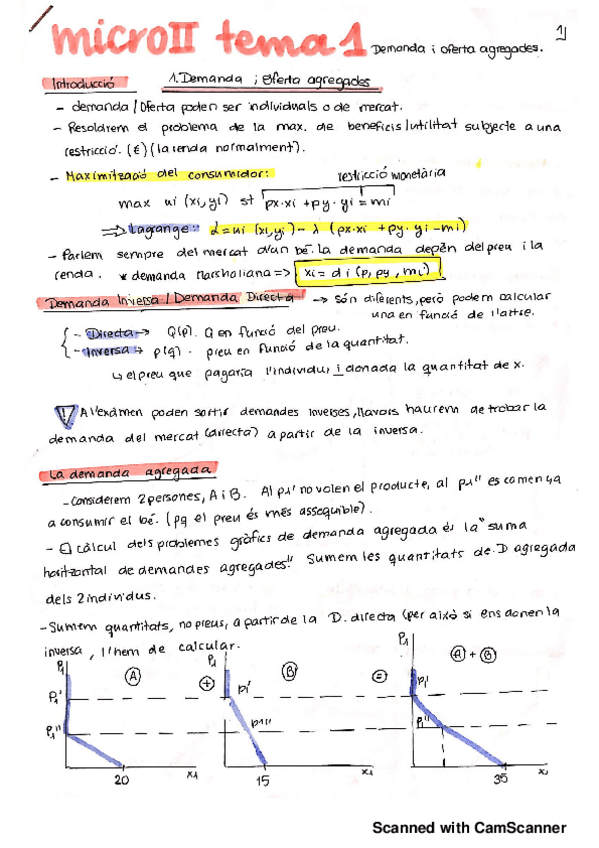 microII tema1 Demanda i oferta agregades. 1)
Introducció 1. Demanda i oferta agregades
- demanda/Oferta poden ser individuals o de mercat.
- Resoldrem el problema de la max. de beneficis/utilitat subjecte a una
restricció. (€) (la renda normalment).
- Maximització del consumidor: restricció monetària
max ui (xi, yi) st px·xi + py·yi = mi
⇒ Lagrange: L = ui (xi, yi) - λ (px·xi + py·yi - mi)
- Parlem sempre del mercat d'un bé. la demanda depèn del preu i la
renda. * demanda Marshaliana => xi = di (p, py, mi)
Demanda Inversa / Demanda Directa → són diferents, però podem calcular
una en funció de l'altre.
- Directa → Q(p). Q en funció del preu.
- Inversa → p(q). preu en funció de la quantitat.
↳ el preu que pagaria l'individu i donada la quantitat de x.
! A l'exàmen poden sortir demandes inverses, llavors haurem de trobar la
demanda del mercat (directa) a partir de la inversa.
La demanda agregada
- Considerem 2 persones, A i B. Al p1' no volen el producte, al p1'' es comença
a consumir el bé. (pq el preu és més assequible).
- El càlcul dels problemes gràfics de demanda agregada és la "suma
horitzontal de demandes agregades". Sumem les quantitats de D agregada
dels 2 individus.
- Sumem quantitats, no preus, a partir de la D. directa (per això si ens donen la
inversa, l'hem de calcular.
P1 A + P1 B = P1 A + B
P1' p1' p1'
P1'' p1'' P1''
20 x1 15 x1 35 x1
Scanned with CamScanner